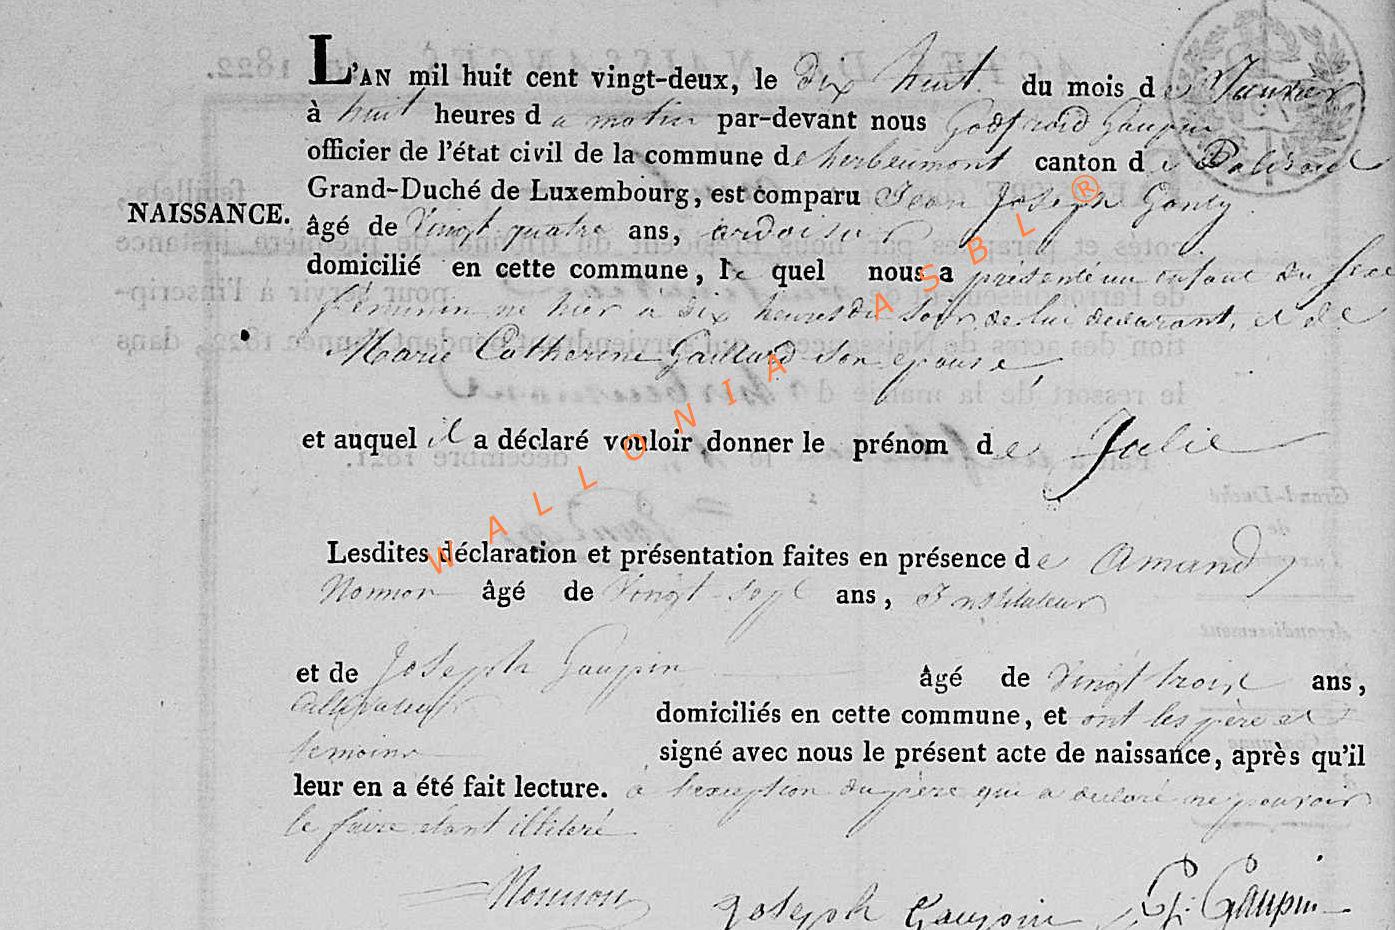 L'AN mil huit cent vingt-deux, le dix huit du mois de Janvier
à huit heures du matin par-devant nous Godfroid Gaupin
officier de l'état civil de la commune de herbeumont canton de Paliseul
Grand-Duché de Luxembourg, est comparu Jean Joseph Gouly
NAISSANCE. âgé de Vingt quatre ans, ardoisier
domicilié en cette commune, le quel nous a présenté un enfant du sexe
féminin né hier à dix heures du soir, de lui déclarant, et de
Marie Catherine Gaillard son épouse,
et auquel il a déclaré vouloir donner le prénom de Julie
Lesdites déclaration et présentation faites en présence de Amand
Nonnon âgé de Vingt-sept ans, Instituteur
et de Joseph Gaupin âgé de Vingt trois ans,
Cultivateur domiciliés en cette commune, et ont les père et
temoins signé avec nous le présent acte de naissance, après qu'il
leur en a été fait lecture. à l'exception du père qui a déclaré ne pouvoir
le faire étant illitéré
Nonnon Joseph Gaupin G: Gaupin
WALLONIA ASBL ®